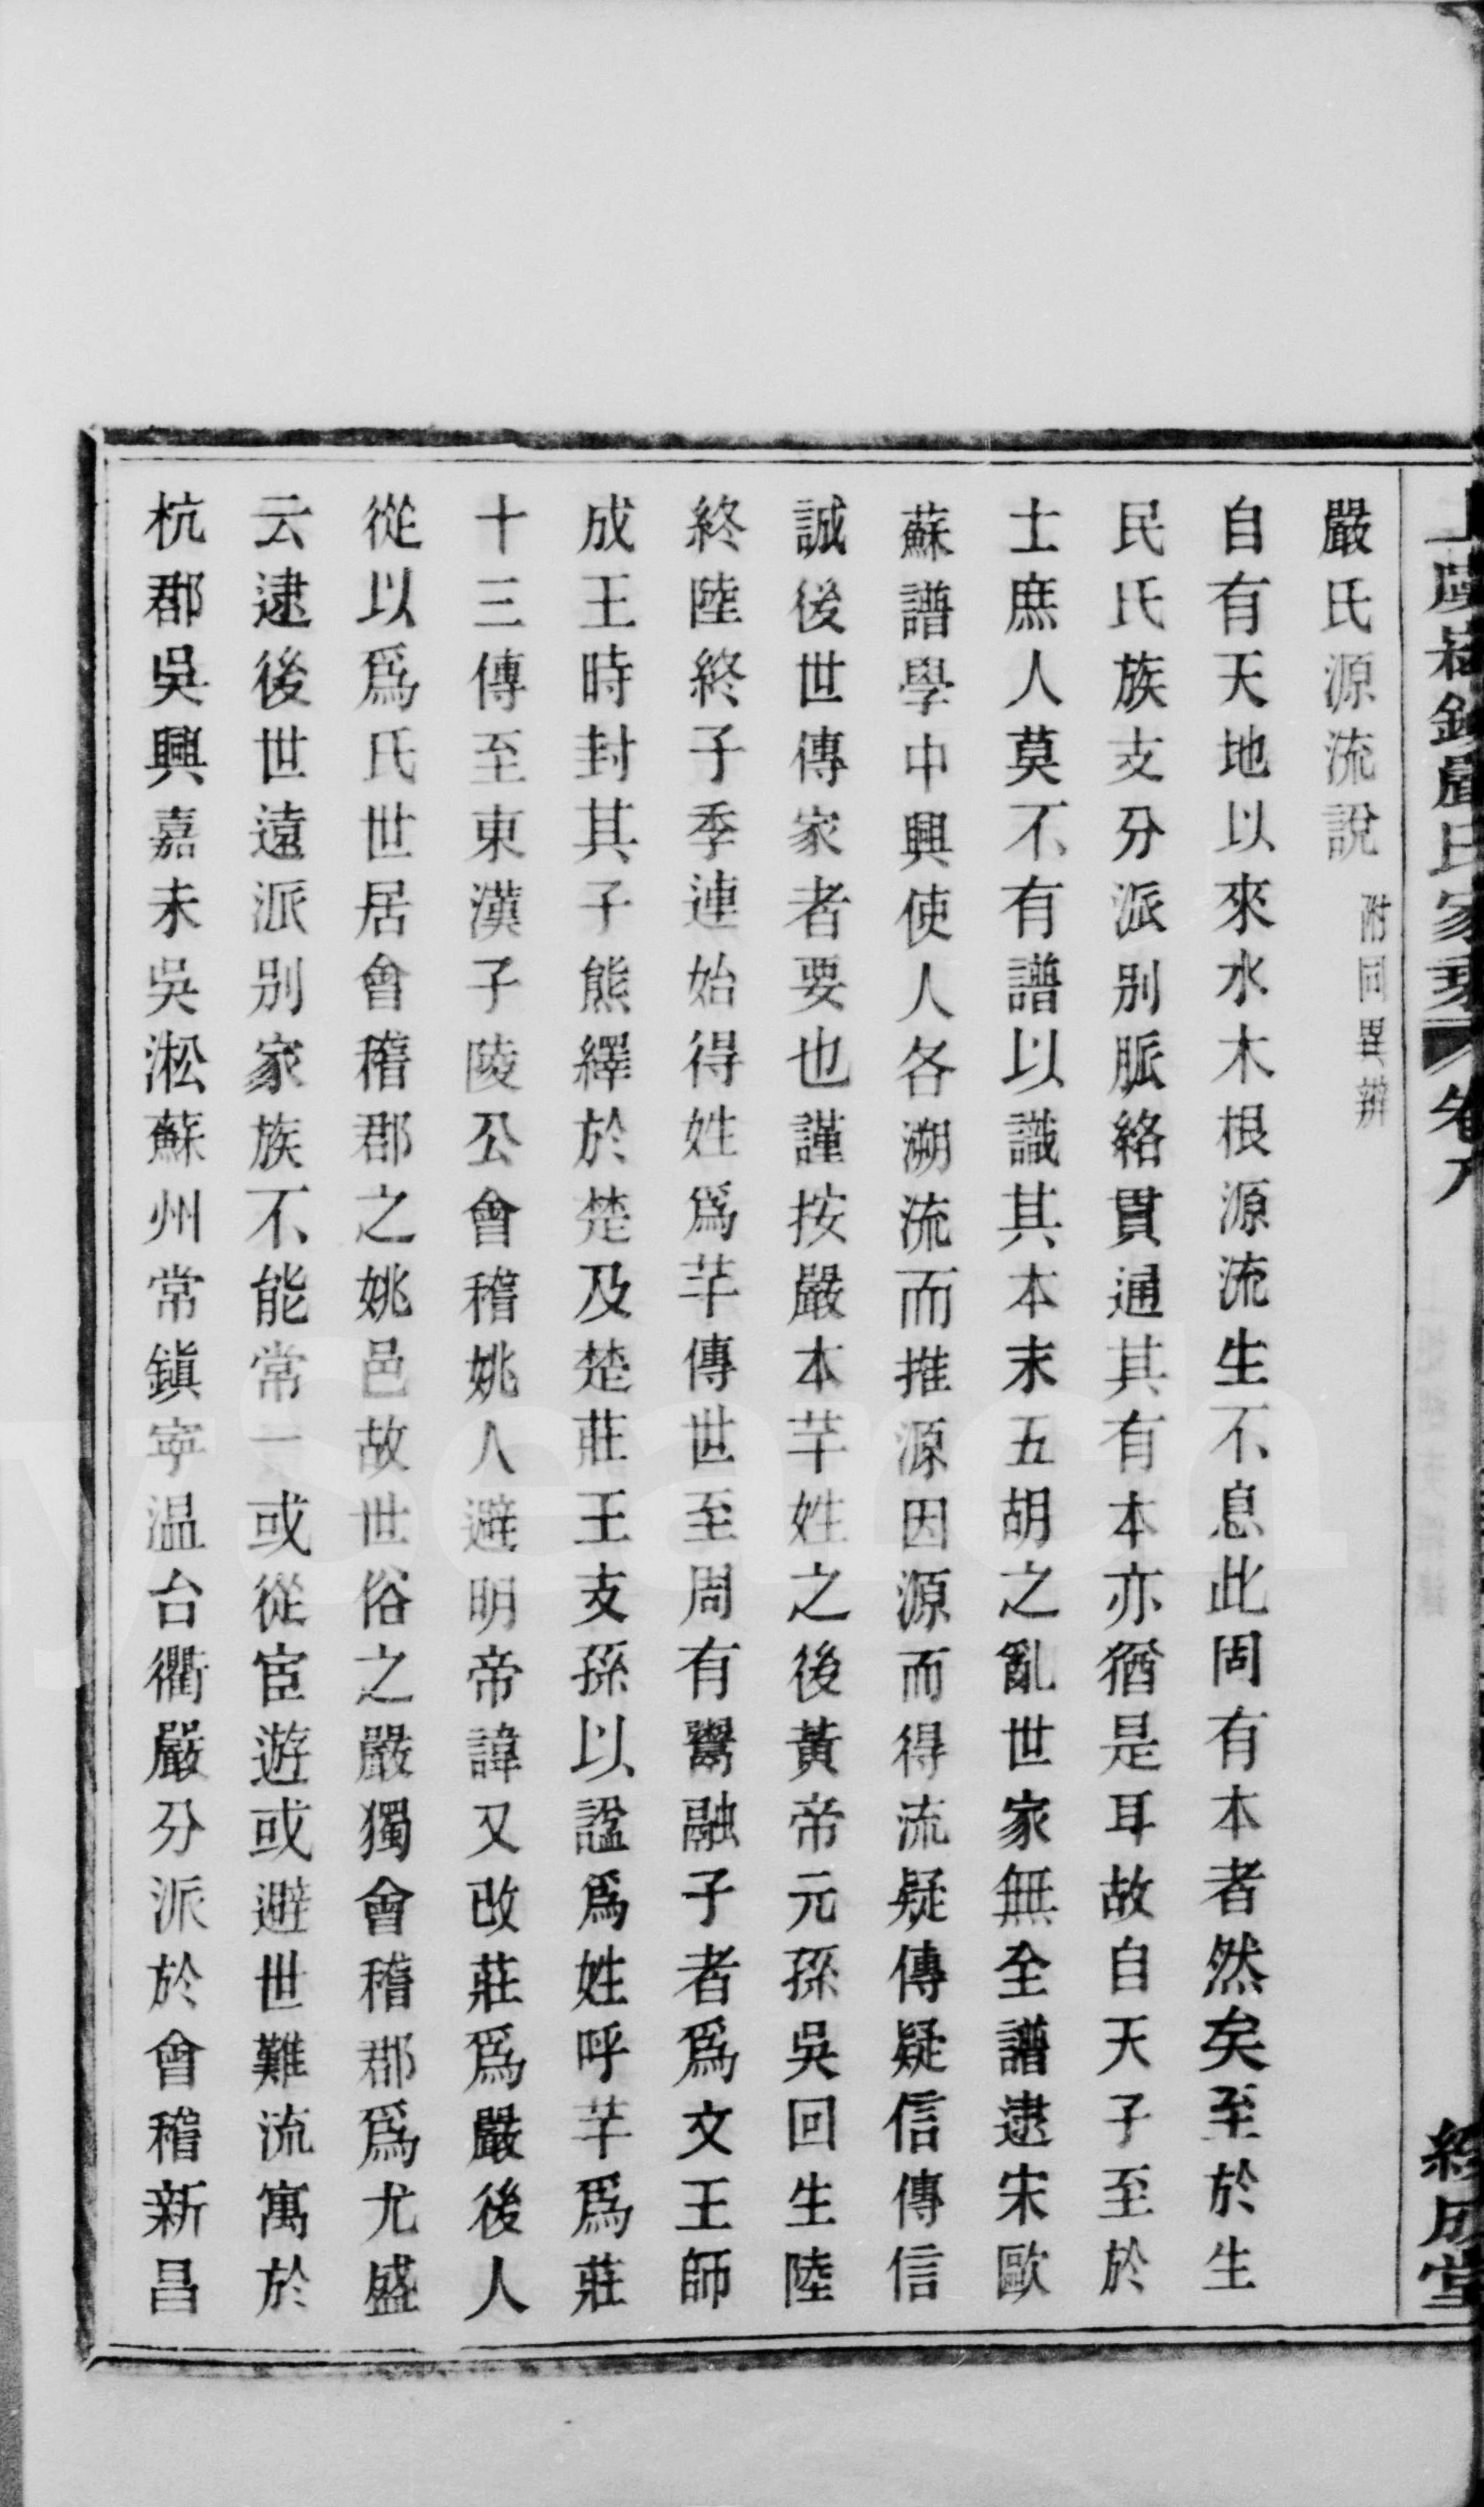 嚴氏源流說 附同異辨
自有天地以來水木根源流生不息此固有本者然矣至於生
民氏族支分派別脈絡貫通其有本亦猶是耳故自天子至於
士庶人莫不有譜以識其本末五胡之亂世家無全譜逮宋歐
蘇譜學中興使人各溯流而推源因源而得流疑傳疑信傳信
誠後世傳家者要也謹按嚴本芊姓之後黃帝元孫吳回生陸
終陸終子季連始得姓爲芊傳世至周有鬻融子者爲文王師
成王時封其子熊繹於楚及楚莊王支孫以諡爲姓呼芊爲莊
十三傳至東漢子陵公會稽姚人避明帝諱又改莊爲嚴後人
從以爲氏世居會稽郡之姚邑故世俗之嚴獨會稽郡爲尤盛
云逮後世遠派別家族不能常一或從宦遊或避世難流寓於
杭郡吳興嘉未吳淞蘇州常鎭寧温台衢嚴分派於會稽新昌